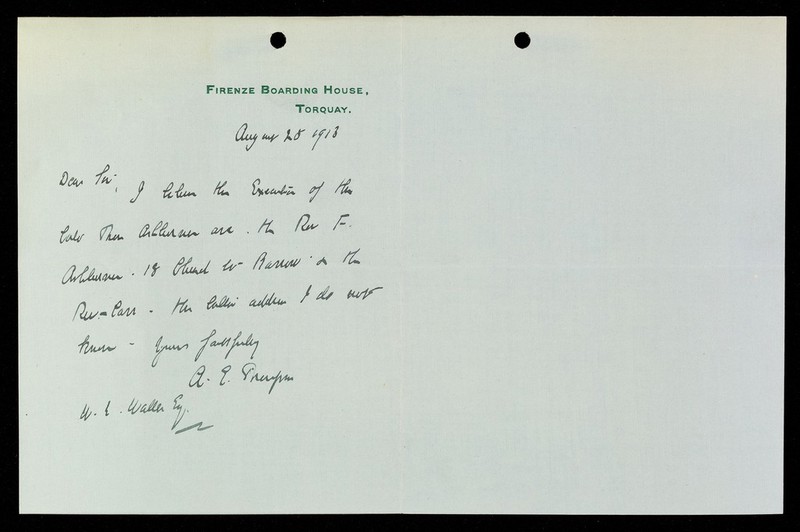 FIRENZE BOARDING HOUSE,
TORQUAY.
August 25 1913
Dear Sir, I believe the Executors of the
late Thos are. the Rev F.
18 Church St Barrow the
Rev = Carr - the latter's address I do not
know - Yours faithfully
A. E.
W. E. Waller Esq.